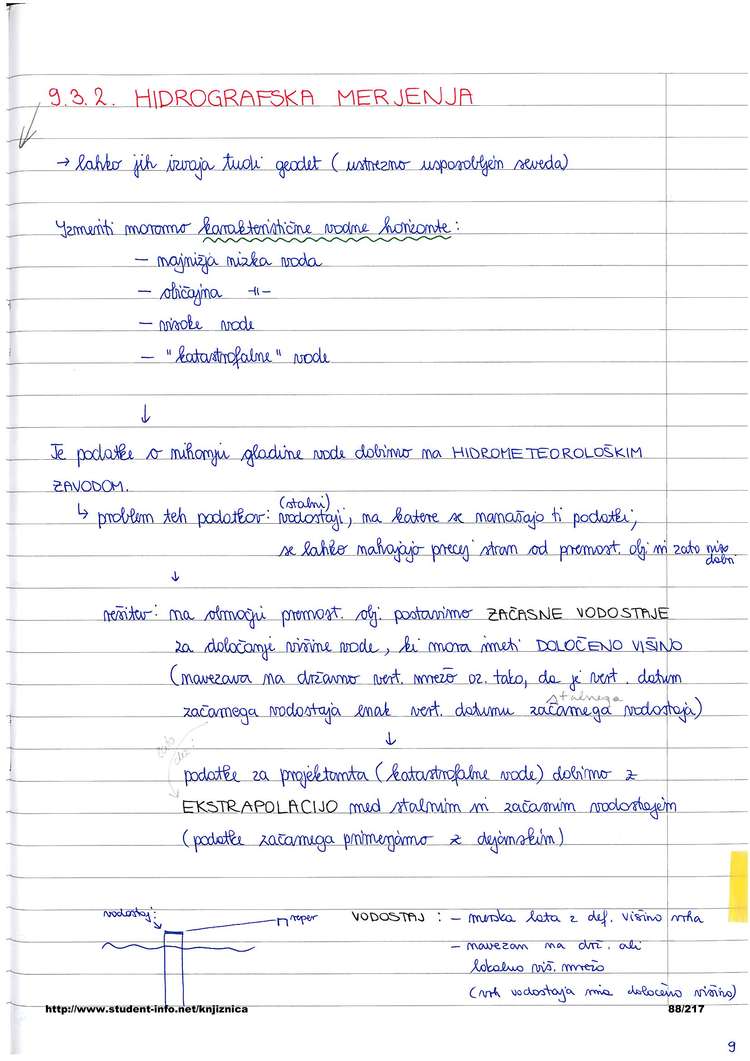 9.3.2. HIDROGRAFSKA MERJENJA
→ lahko jih izvaja tudi geodet (ustrezno usposobljen seveda)
Izmeriti moramo karakteristične vodne horizonte:
– najnižja nizka voda
– običajna –||–
– visoke vode
– "katastrofalne" vode
↓
Te podatke o nihanju gladine vode dobimo na HIDROMETEOROLOŠKIM
ZAVODOM.
↳ problem teh podatkov: (stalni) vodostaji, na katere se nanašajo ti podatki,
se lahko nahajajo precej stran od premost. obj. in zato niso dobri
↓
rešitev: na območju premost. obj. postavimo ZAČASNE VODOSTAJE
za določanje višine vode, ki mora imeti DOLOČENO VIŠINO
(navezava na državno vert. mrežo oz. tako, da je vert. datum
stalnega
začasnega vodostaja enak vert. datumu začasnega vodostaja)
↓
podatke za projektanta (katastrofalne vode) dobimo z
EKSTRAPOLACIJO med stalnim in začasnim vodostajem
(podatke začasnega primerjamo z dejanskim)
vodostaj:
reper
VODOSTAJ : – merska lata z def. višino vrha
– navezan na drž. ali
lokalno viš. mrežo
(vrh vodostaja ima določeno višino)
http://www.student-info.net/knjiznica
88/217
9